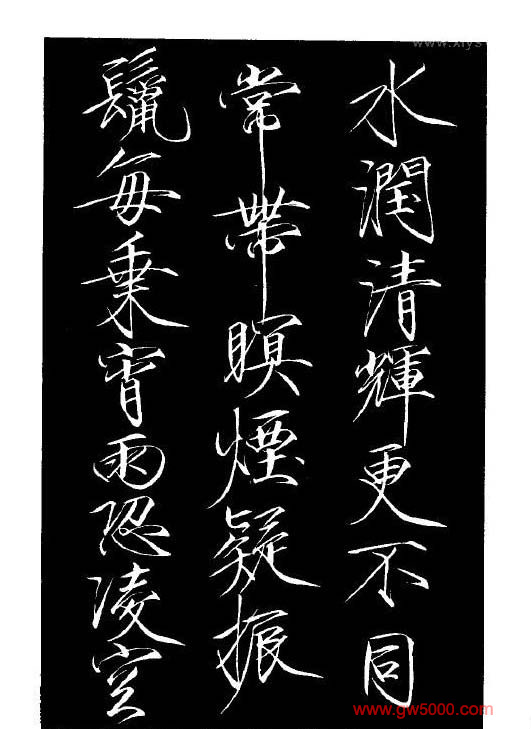 水潤清輝更不同
常帶瞑煙疑振
鬣每乗宵雨恐凌空
www.xlys
www.gw5000.com